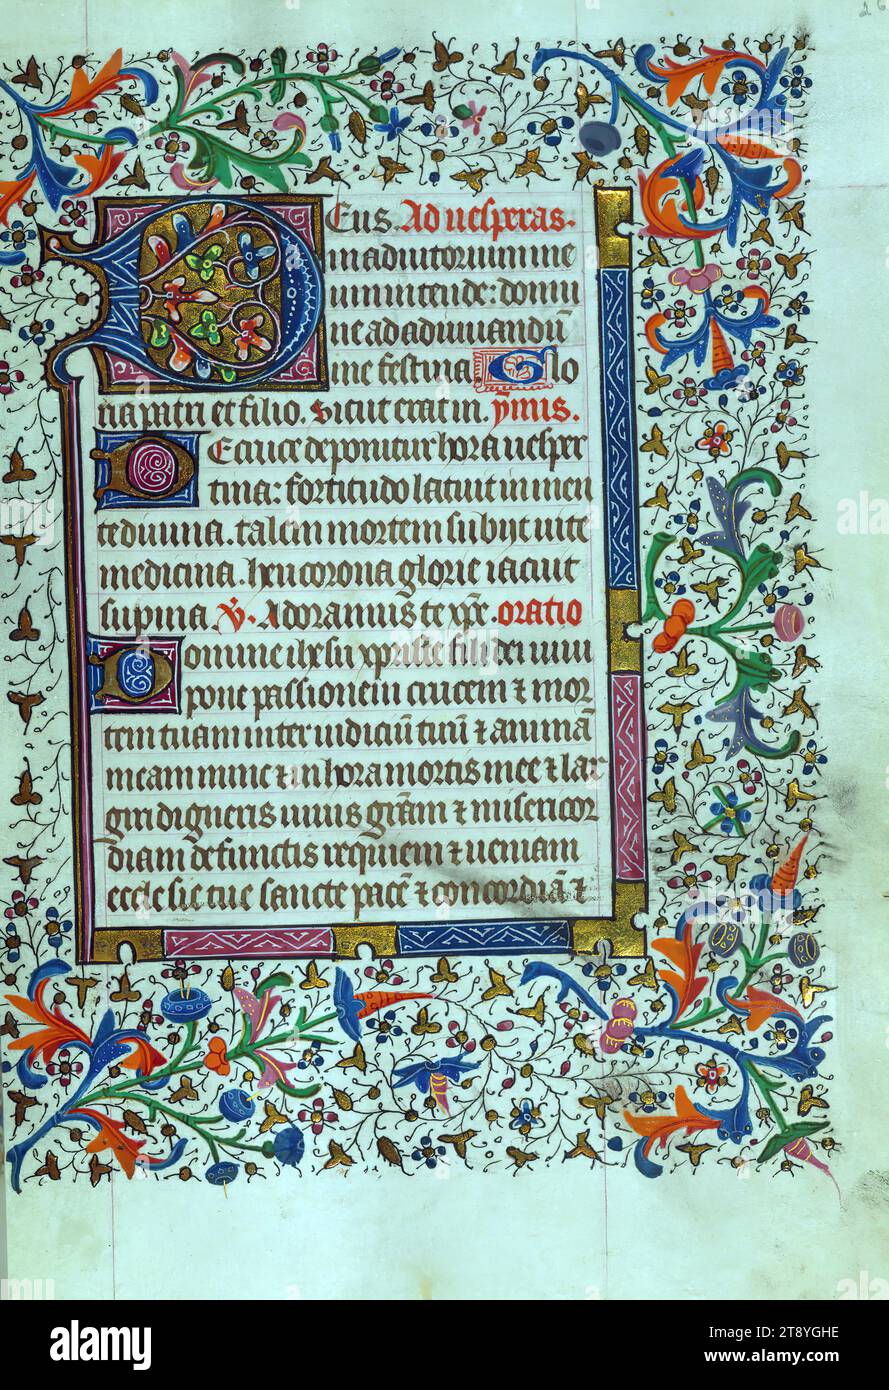 26
Deus. Ad vesperas.
in adiutorium me
um intende: domi
ne ad adiuuandū
me festina Glo
ria patri et filio. Sicut erat in. ymnis.
De cruce deponitur hora vesper
tina: fortitudo latuit in men
te diuina. talem mortem subijt vite
medicina. heu corona glorie iacuit
supina. V. Adoramus te xp̄e. oratio
Domine ihesu xpriste fili dei viui
pone passionem crucem ⁊ mor
tem tuam inter iudiciū tuū ⁊ animā
meam nunc ⁊ in hora mortis mee ⁊ lar
giri digneris viuis grām ⁊ misericor
diam defunctis requiem ⁊ ueniam
ecclesie tue sancte pacē ⁊ concordiā ⁊
alamy
Image ID: 2T8YGHE
www.alamy.com